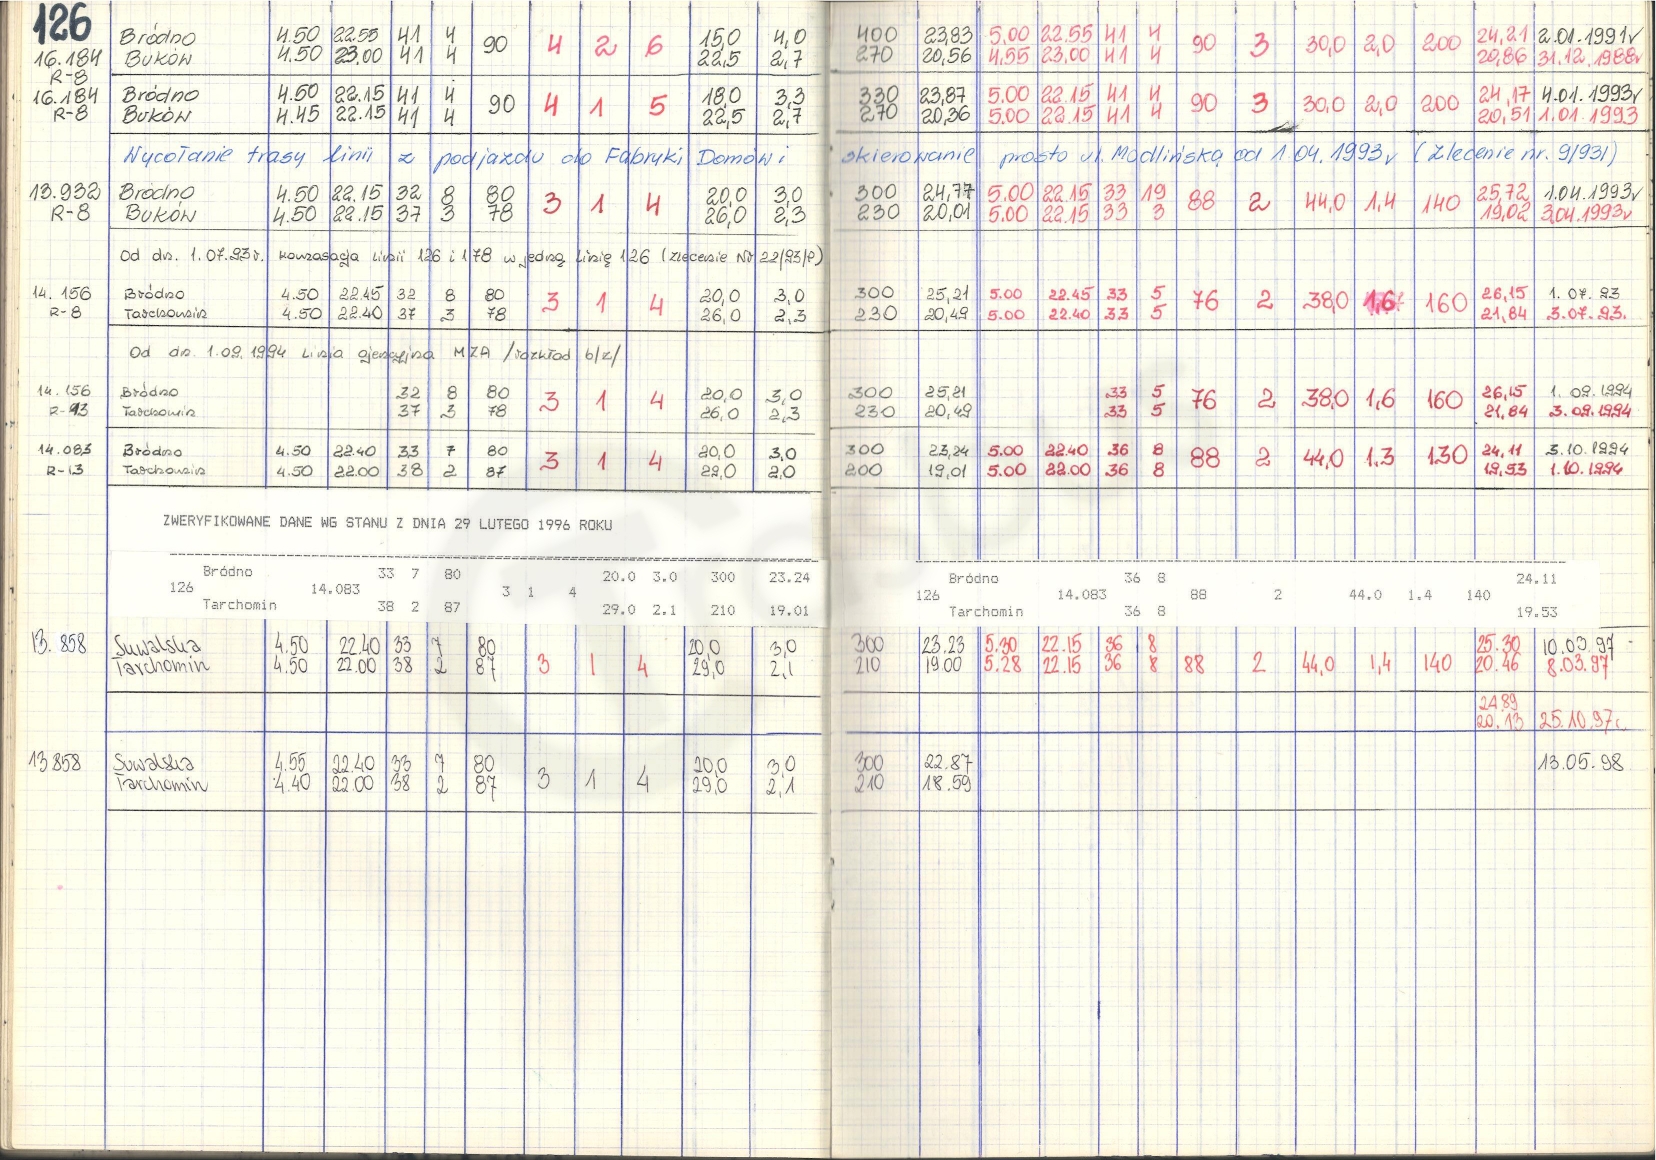 126
Bródno 4.50 22.55 41 4 90 4 2 6 15,0 4,0 400 23,83 5.00 22.55 41 4 90 3 30,0 2,0 200 24,21 2.01.1991r
16.184 Buków 4.50 23.00 41 4 22,5 2,7 270 20,56 4,55 23,00 41 4 20,86 31.12.1988r
R-8
16.184 Bródno 4.50 22.15 41 4 90 4 1 5 18,0 3,3 330 23,87 5.00 22.15 41 4 90 3 30,0 2,0 200 24,17 4.01.1993r
R-8 Buków 4.45 22.15 41 4 22,5 2,7 270 20,36 5.00 22.15 41 4 20,51 1.01.1993
Wycofanie trasy linii z podjazdu do Fabryki Domów i skierowanie prosto ul. Modlińską od 1.04.1993r (Zlecenie nr. 9/93/)
13.932 Bródno 4.50 22.15 32 8 80 3 1 4 20,0 3,0 300 24,77 5.00 22.15 33 19 88 2 44,0 1,4 140 25,72 1.04.1993r
R-8 Buków 4.50 22.15 37 3 78 26,0 2,3 230 20,01 5.00 22.15 33 3 19,02 3,04.1993r
Od dn. 1.07.93r. kumasacja linii 126 i 178 w jedną linię 126 (zlecenie Nr 22/93/P)
14.156 Bródno 4.50 22.45 32 8 80 3 1 4 20,0 3,0 300 25,21 5.00 22.45 33 5 76 2 38,0 1,6 160 26,15 1.07.93
R-8 Tarchomin 4.50 22.40 37 3 78 26,0 2,3 230 20,49 5.00 22.40 33 5 21,84 3.07.93.
Od dn. 1.09.1994 Linia ajencyjna MZA /rozkład b/z/
14.156 Bródno 32 8 80 3 1 4 20,0 3,0 300 25,21 33 5 76 2 38,0 1,6 160 26,15 1.09.1994
R-13 Tarchomin 37 3 78 26,0 2,3 230 20,49 33 5 21,84 3.09.1994
14.083 Bródno 4.50 22.40 33 7 80 3 1 4 20,0 3,0 300 23,24 5.00 22.40 36 8 88 2 44,0 1,3 130 24,11 3.10.1994
R-13 Tarchomin 4.50 22.00 38 2 87 29,0 2,0 200 19,01 5.00 22.00 36 8 19,53 1.10.1994
ZWERYFIKOWANE DANE WG STANU Z DNIA 29 LUTEGO 1996 ROKU
Bródno 33 7 80 20.0 3.0 300 23.24 Bródno 36 8 24.11
126 14.083 3 1 4 126 14.083 88 2 44.0 1.4 140
Tarchomin 38 2 87 29.0 2.1 210 19.01 Tarchomin 36 8 19.53
13.858 Suwalska 4.50 22.40 33 7 80 20,0 3,0 300 23.23 5.30 22.15 36 8 25.30 10.03.97
Tarchomin 4.50 22.00 38 2 87 3 1 4 29,0 2,1 210 19.00 5.28 22.15 36 8 88 2 44,0 1,4 140 20.46 8.03.97
24.89
20.13 25.10.97r.
13858 Suwalska 4.55 22.40 33 7 80 3 1 4 20,0 3,0 300 22.87 13.05.98
Tarchomin 4.40 22.00 38 2 87 29,0 2,1 210 18.59